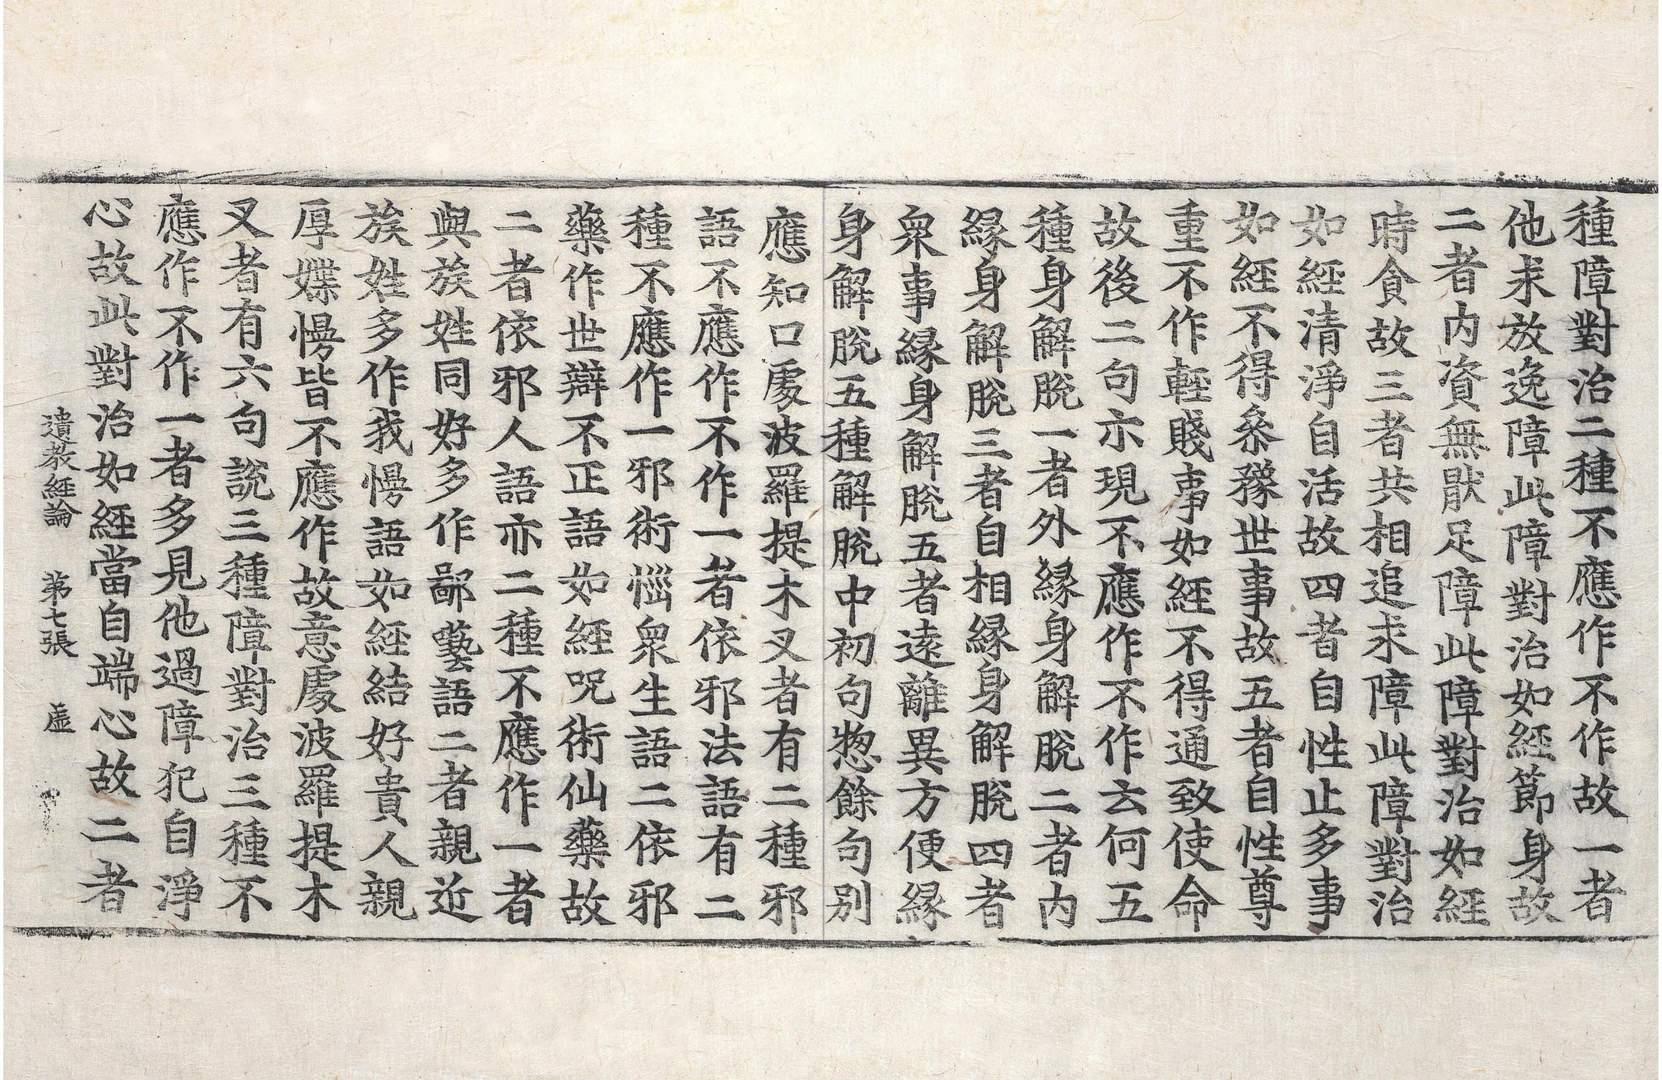 種障對治二種不應作不作故一者
他求放逸障此障對治如經節身故
二者內資無猒足障此障對治如經
時食故三者共相追求障此障對治
如經清淨自活故四者自性止多事
如經不得叅豫世事故五者自性尊
重不作輕賤事如經不得通致使命
故後二句亦現不應作不作云何五
種身解脫一者外緣身解脫二者內
緣身解脫三者自相緣身解脫四者
衆事緣身解脫五者遠離異方便緣
身解脫五種解脫中初句惣餘句別
應知口處波羅提木叉者有二種邪
語不應作不作一者依邪法語有二
種不應作一邪術惱衆生語二依邪
藥作世辯不正語如經呪術仙藥故
二者依邪人語亦二種不應作一者
與族姓同好多作鄙藝語二者親近
族姓多作我慢語如經結好貴人親
厚媟慢皆不應作故意處波羅提木
叉者有六句說三種障對治三種不
應作不作一者多見他過障犯自淨
心故此對治如經當自端心故二者
遺教經論 第七張 虛